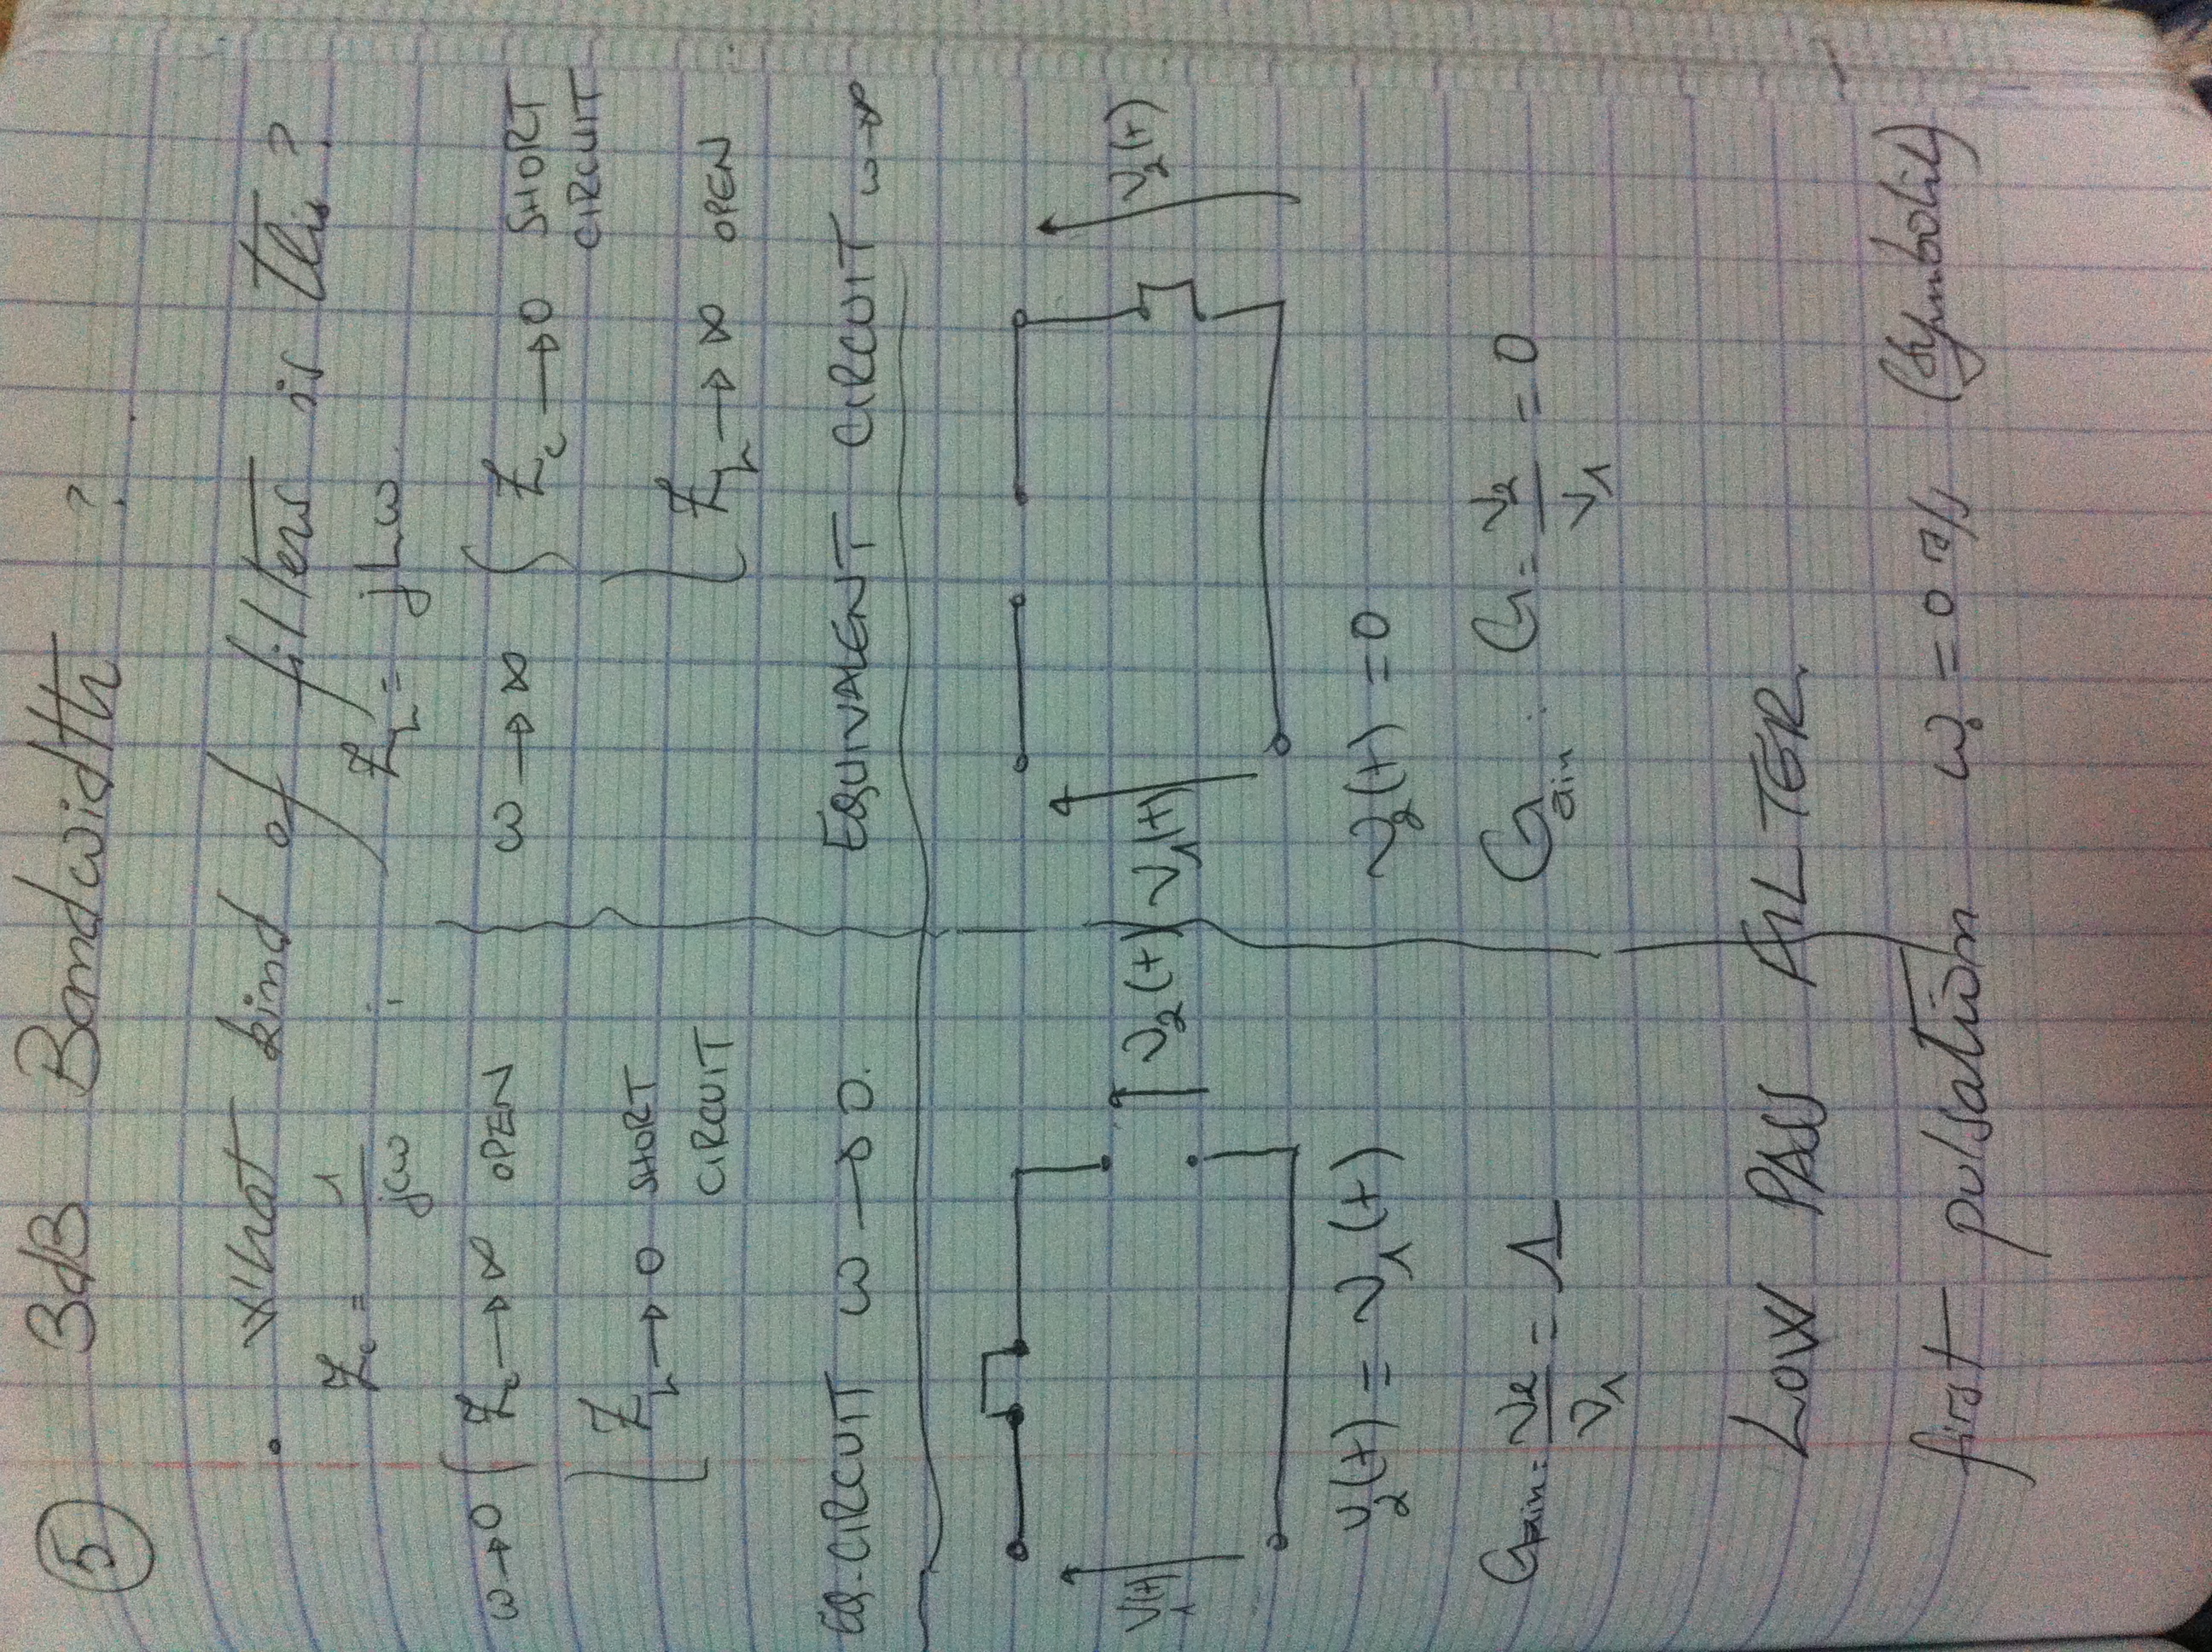 5 3dB Bandwidth ?
• What kind of filter is this ?
Zc = 1/jcω ZL = jLω
ω→0 { Zc → ∞ OPEN
ZL → 0 SHORT CIRCUIT
ω → ∞ { Zc → 0 SHORT CIRCUIT
ZL → ∞ OPEN
EQ. CIRCUIT ω → 0.
EQUIVALENT CIRCUIT ω→∞
V1(t) V2(t)
V1(t) V2(t)
V2(t) = V1(t)
V2(t) = 0
Gain = V2/V1 = 1
Gain : G = V2/V1 = 0
LOW PASS FILTER.
first pulsation ω0 = 0 r/s (symbolic)